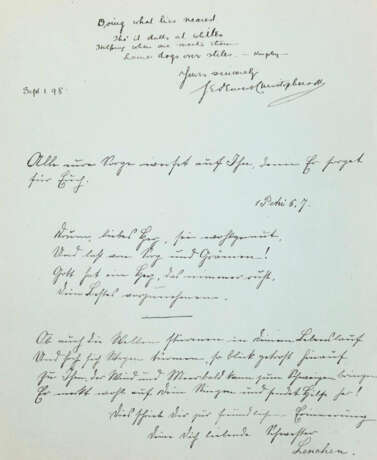 Doing what lies nearest
Tho' it dulls at whiles
Helping when we meet them
Lame dogs over stiles – Kingsley –
Yours sincerely
Sept 1. 98.
Alle eure Sorge werfet auf Ihn, denn Er sorget
für Euch.
1 Petri 5.7.
Drum, liebes Herz, sei wohlgemut,
Und laß von Sorg und Grämen!
Gott hat ein Herz, das nimmer ruht,
Dein Bestes vorzunehmen.
Ob auch die Wellen stürmen in deinem Lebenslauf
Und hoch sich Wogen türmen, so blick getrost hinauf
Zu Ihm, der Wind und Meer bald kann zum Schweigen bringen
Er merkt wohl auf dein Ringen und sendet Hilfe her!
Dies schrieb Dir zur freundlichen Erinnerung
Deine Dich liebende Schwester
Lenchen.